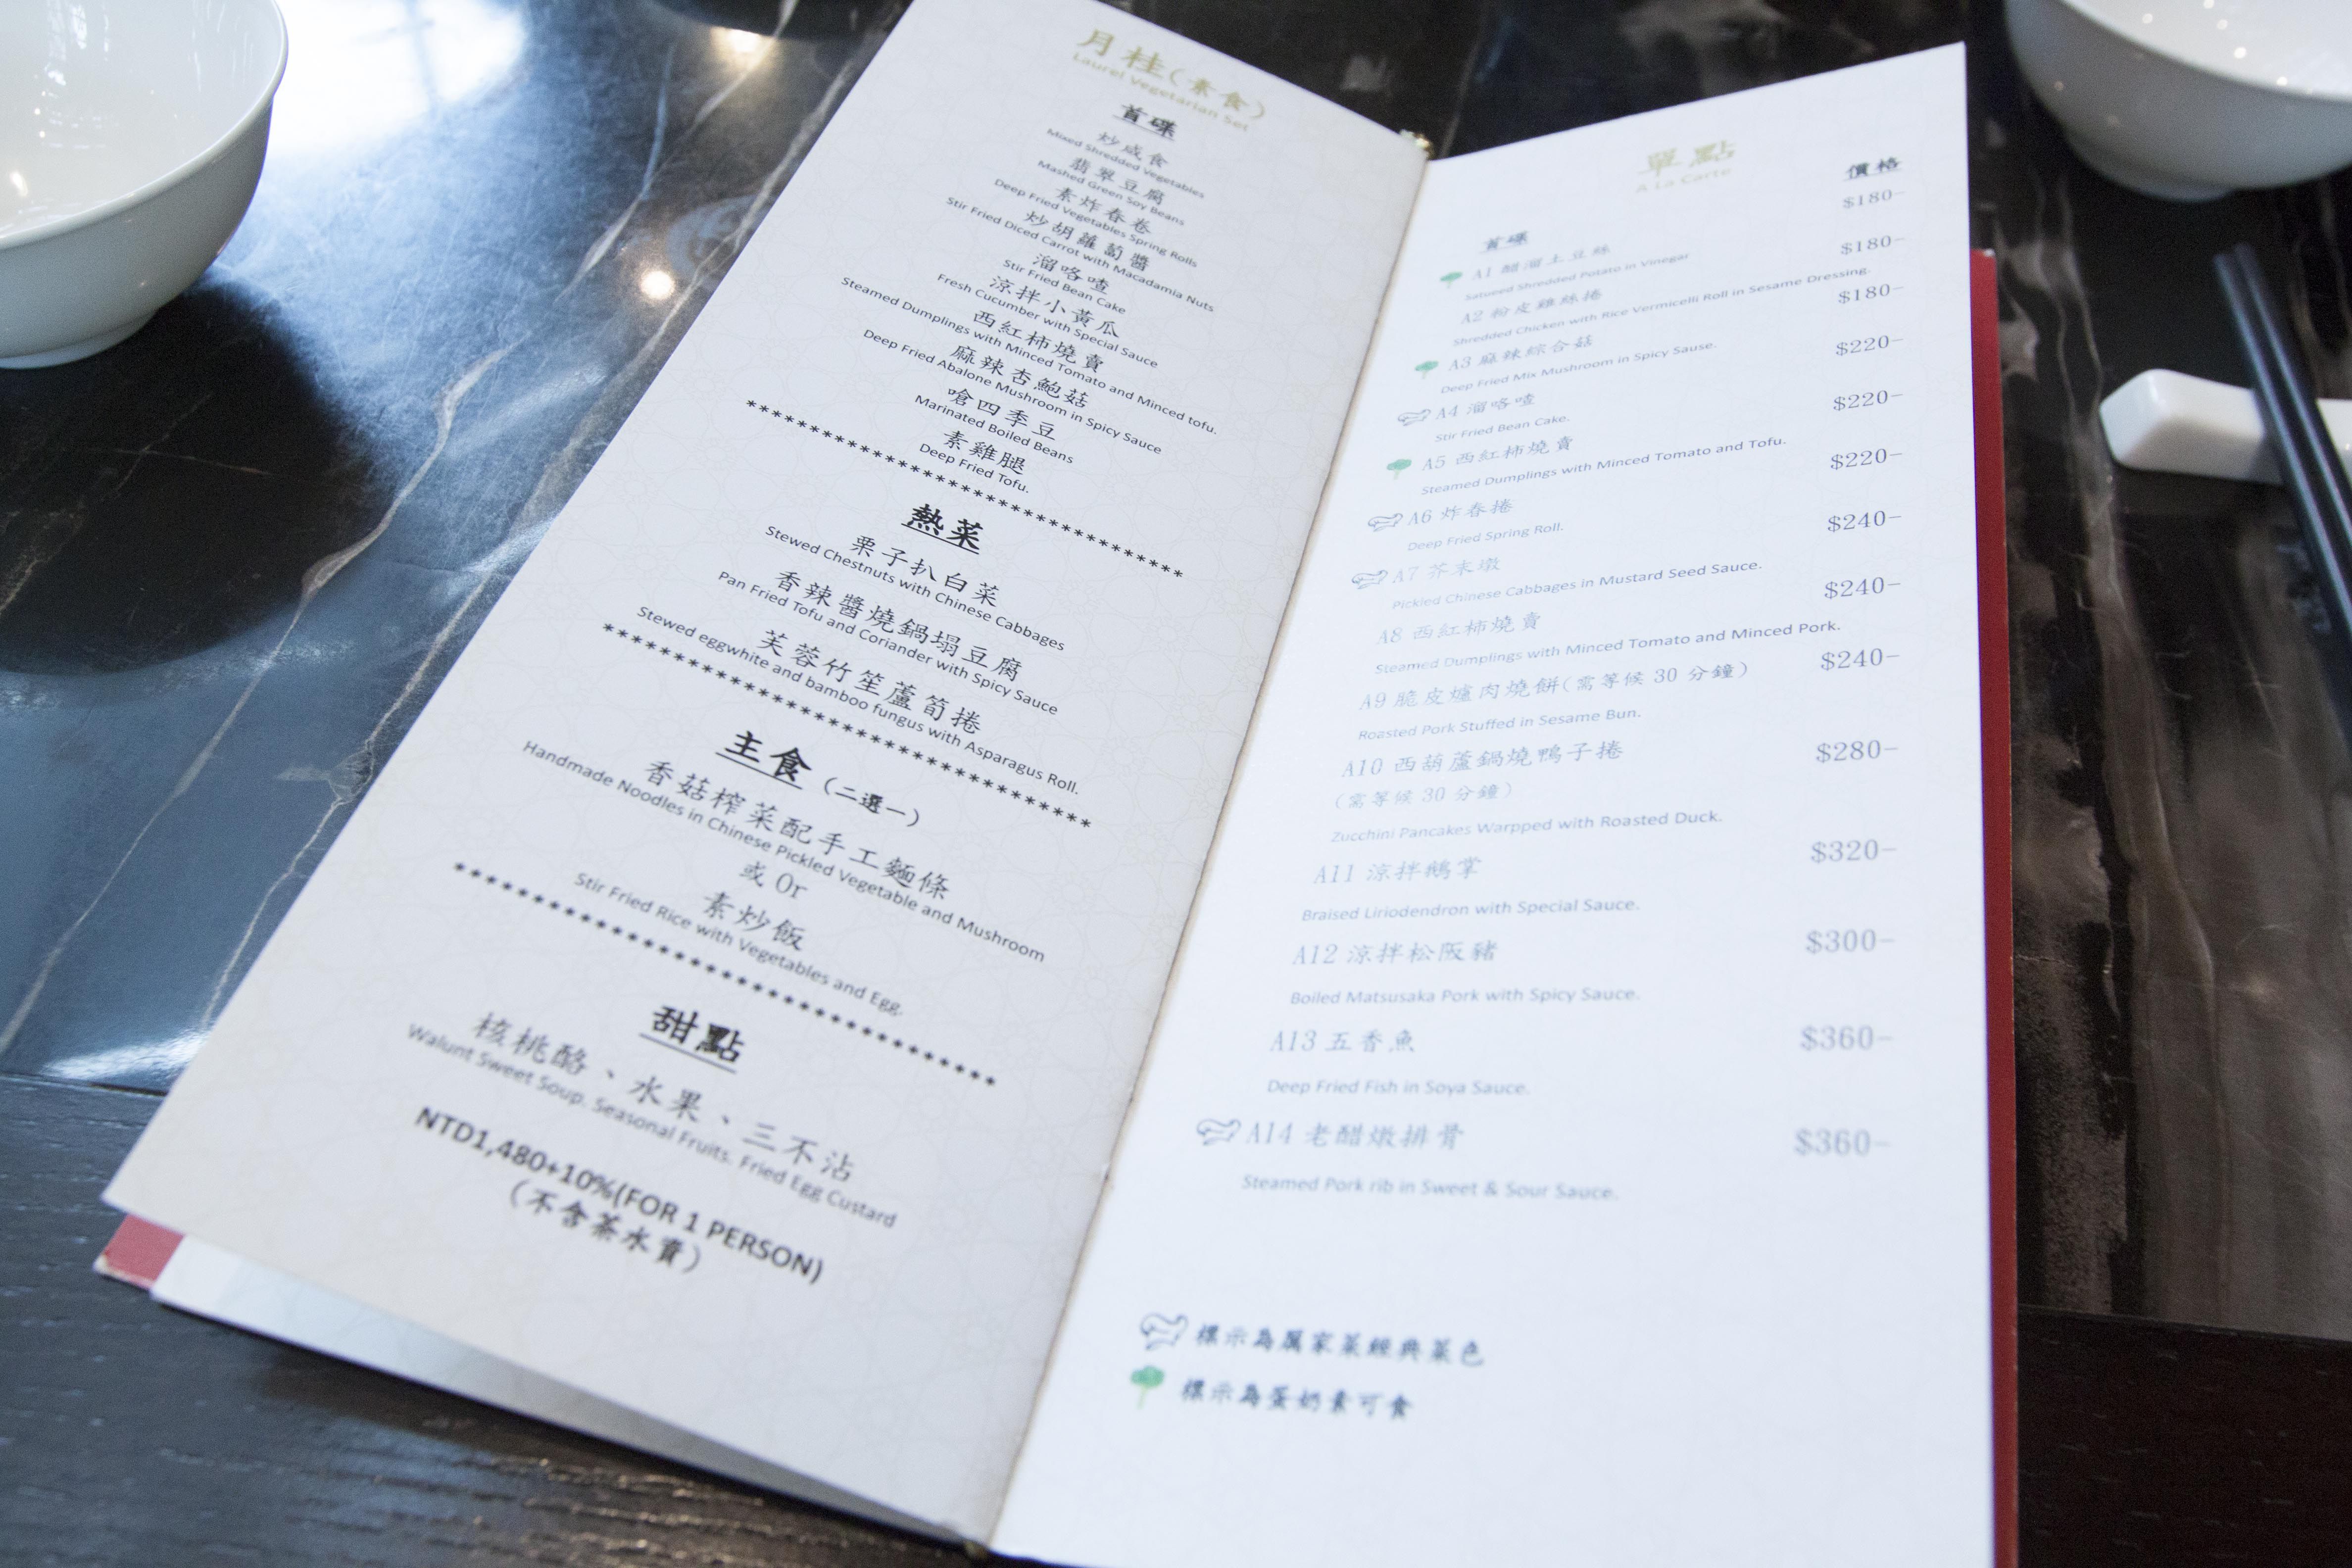 月桂(素食)
Laurel Vegetarian Set
首碟
炒咸食
Mixed Shredded Vegetables
翡翠豆腐
Mashed Green Soy Beans
素炸春卷
Deep Fried Vegetables Spring Rolls
炒胡蘿蔔醬
Stir Fried Diced Carrot with Macadamia Nuts
溜咯喳
Stir Fried Bean Cake
涼拌小黃瓜
Fresh Cucumber with Special Sauce
西紅柿燒賣
Steamed Dumplings with Minced Tomato and Minced tofu.
麻辣杏鮑菇
Deep Fried Abalone Mushroom in Spicy Sauce
嗆四季豆
Marinated Boiled Beans
素雞腿
Deep Fried Tofu.
熱菜
栗子扒白菜
Stewed Chestnuts with Chinese Cabbages
香辣醬燒鍋塌豆腐
Pan Fried Tofu and Coriander with Spicy Sauce
芙蓉竹笙蘆筍捲
Stewed eggwhite and bamboo fungus with Asparagus Roll.
主食(二選一)
香菇榨菜配手工麵條
Handmade Noodles in Chinese Pickled Vegetable and Mushroom
或 Or
素炒飯
Stir Fried Rice with Vegetables and Egg.
甜點
核桃酪、水果、三不沾
Walunt Sweet Soup. Seasonal Fruits. Fried Egg Custard
NTD1,480+10%(FOR 1 PERSON)
(不含茶水資)
單點
A La Carte
首碟 價格
A1 醋溜土豆絲 $180-
Satueed Shredded Potato in Vinegar
A2 粉皮雞絲捲 $180-
Shredded Chicken with Rice Vermicelli Roll in Sesame Dressing.
A3 麻辣綜合菇 $180-
Deep Fried Mix Mushroom in Spicy Sause.
A4 溜咯喳 $220-
Stir Fried Bean Cake.
A5 西紅柿燒賣 $220-
Steamed Dumplings with Minced Tomato and Tofu.
A6 炸春捲 $220-
Deep Fried Spring Roll.
A7 芥末墩 $240-
Pickled Chinese Cabbages in Mustard Seed Sauce.
A8 西紅柿燒賣 $240-
Steamed Dumplings with Minced Tomato and Minced Pork.
A9 脆皮爐肉燒餅(需等候 30 分鐘) $240-
Roasted Pork Stuffed in Sesame Bun.
A10 西葫蘆鍋燒鴨子捲 $280-
(需等候 30 分鐘)
Zucchini Pancakes Warpped with Roasted Duck.
A11 涼拌鵝掌 $320-
Braised Liriodendron with Special Sauce.
A12 涼拌松阪豬 $300-
Boiled Matsusaka Pork with Spicy Sauce.
A13 五香魚 $360-
Deep Fried Fish in Soya Sauce.
A14 老醋燉排骨 $360-
Steamed Pork rib in Sweet & Sour Sauce.
標示為厲家菜經典菜色
標示為蛋奶素可食